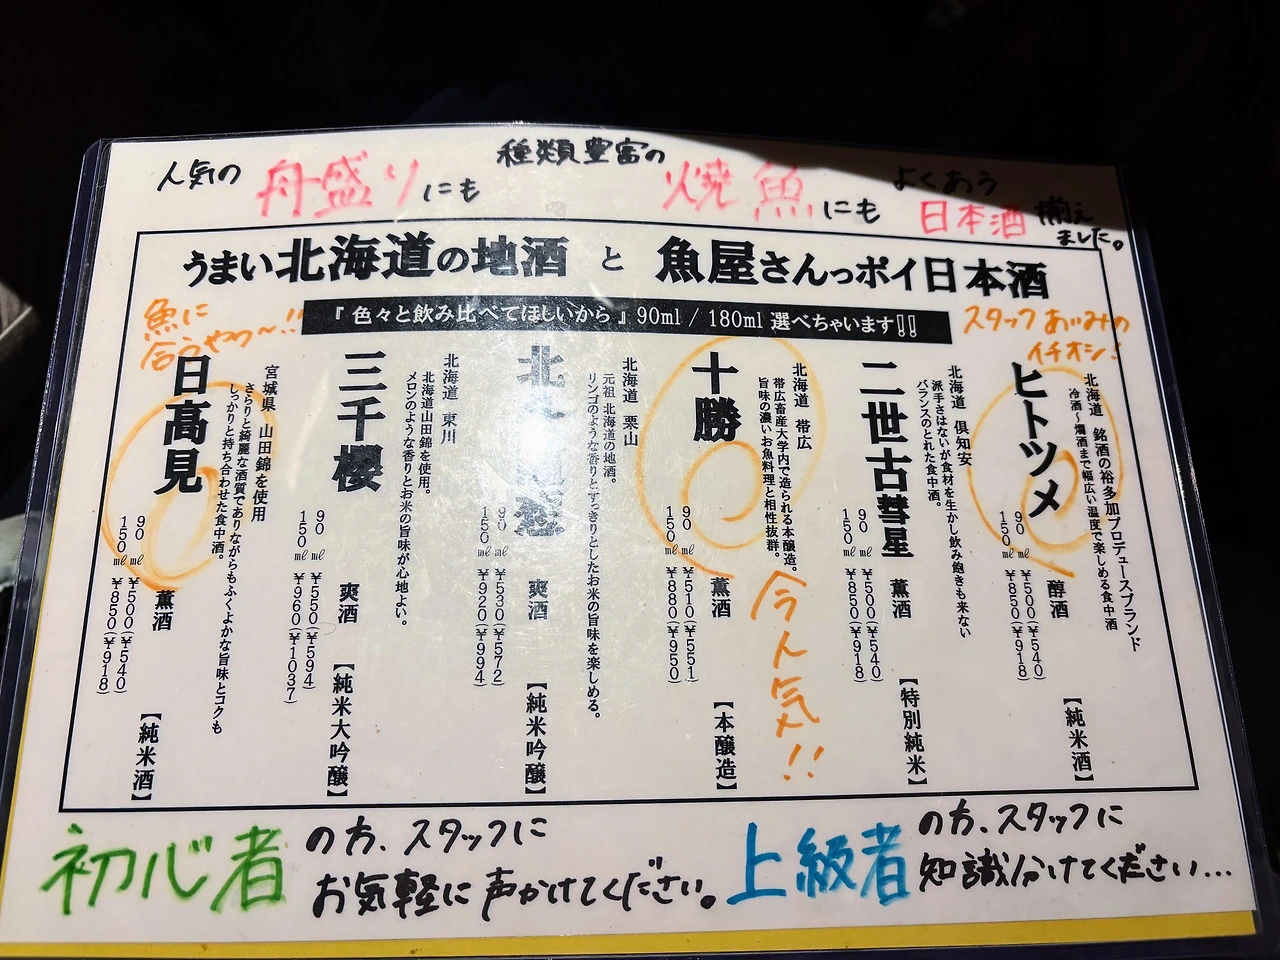 人気の舟盛りにも
種類豊富の焼魚にも
よくあう日本酒揃えました。
うまい北海道の地酒と魚屋さんっポイ日本酒
『色々と飲み比べてほしいから』90ml / 180ml 選べちゃいます!!
スタッフあいみのイチオシ!
ヒトツメ
北海道 銘酒の裕多加プロデュースブランド
冷酒~燗酒まで幅広い温度で楽しめる食中酒
醇酒
【純米酒】
90㎖ ¥500(¥540)
150㎖ ¥850(¥918)
二世古彗星
北海道 倶知安
派手さはないが食材を生かし飲み飽きも来ない
バランスのとれた食中酒。
薫酒
【特別純米】
90㎖ ¥500(¥540)
150㎖ ¥850(¥918)
十勝
北海道 帯広
帯広畜産大学内で造られる本醸造。
旨味の濃いお魚料理と相性抜群。
今人気!!
薫酒
【本醸造】
90㎖ ¥510(¥551)
150㎖ ¥880(¥950)
北
北海道 栗山
元祖 北海道の地酒。
リンゴのような香りとすっきりとしたお米の旨味を楽しめる。
爽酒
【純米吟醸】
90㎖ ¥530(¥572)
150㎖ ¥920(¥994)
三千櫻
北海道 東川
北海道山田錦を使用。
メロンのような香りとお米の旨味が心地よい。
爽酒
【純米大吟醸】
90㎖ ¥550(¥594)
150㎖ ¥960(¥1037)
魚に合うやつ~!!
日高見
宮城県 山田錦を使用
さらりと綺麗な酒質でありながらもふくよかな旨味とコクも
しっかりと持ち合わせた食中酒。
薫酒
【純米酒】
90㎖ ¥500(¥540)
150㎖ ¥850(¥918)
初心者の方、スタッフに
お気軽に声かけてください。
上級者の方、スタッフに
知識分けてください…